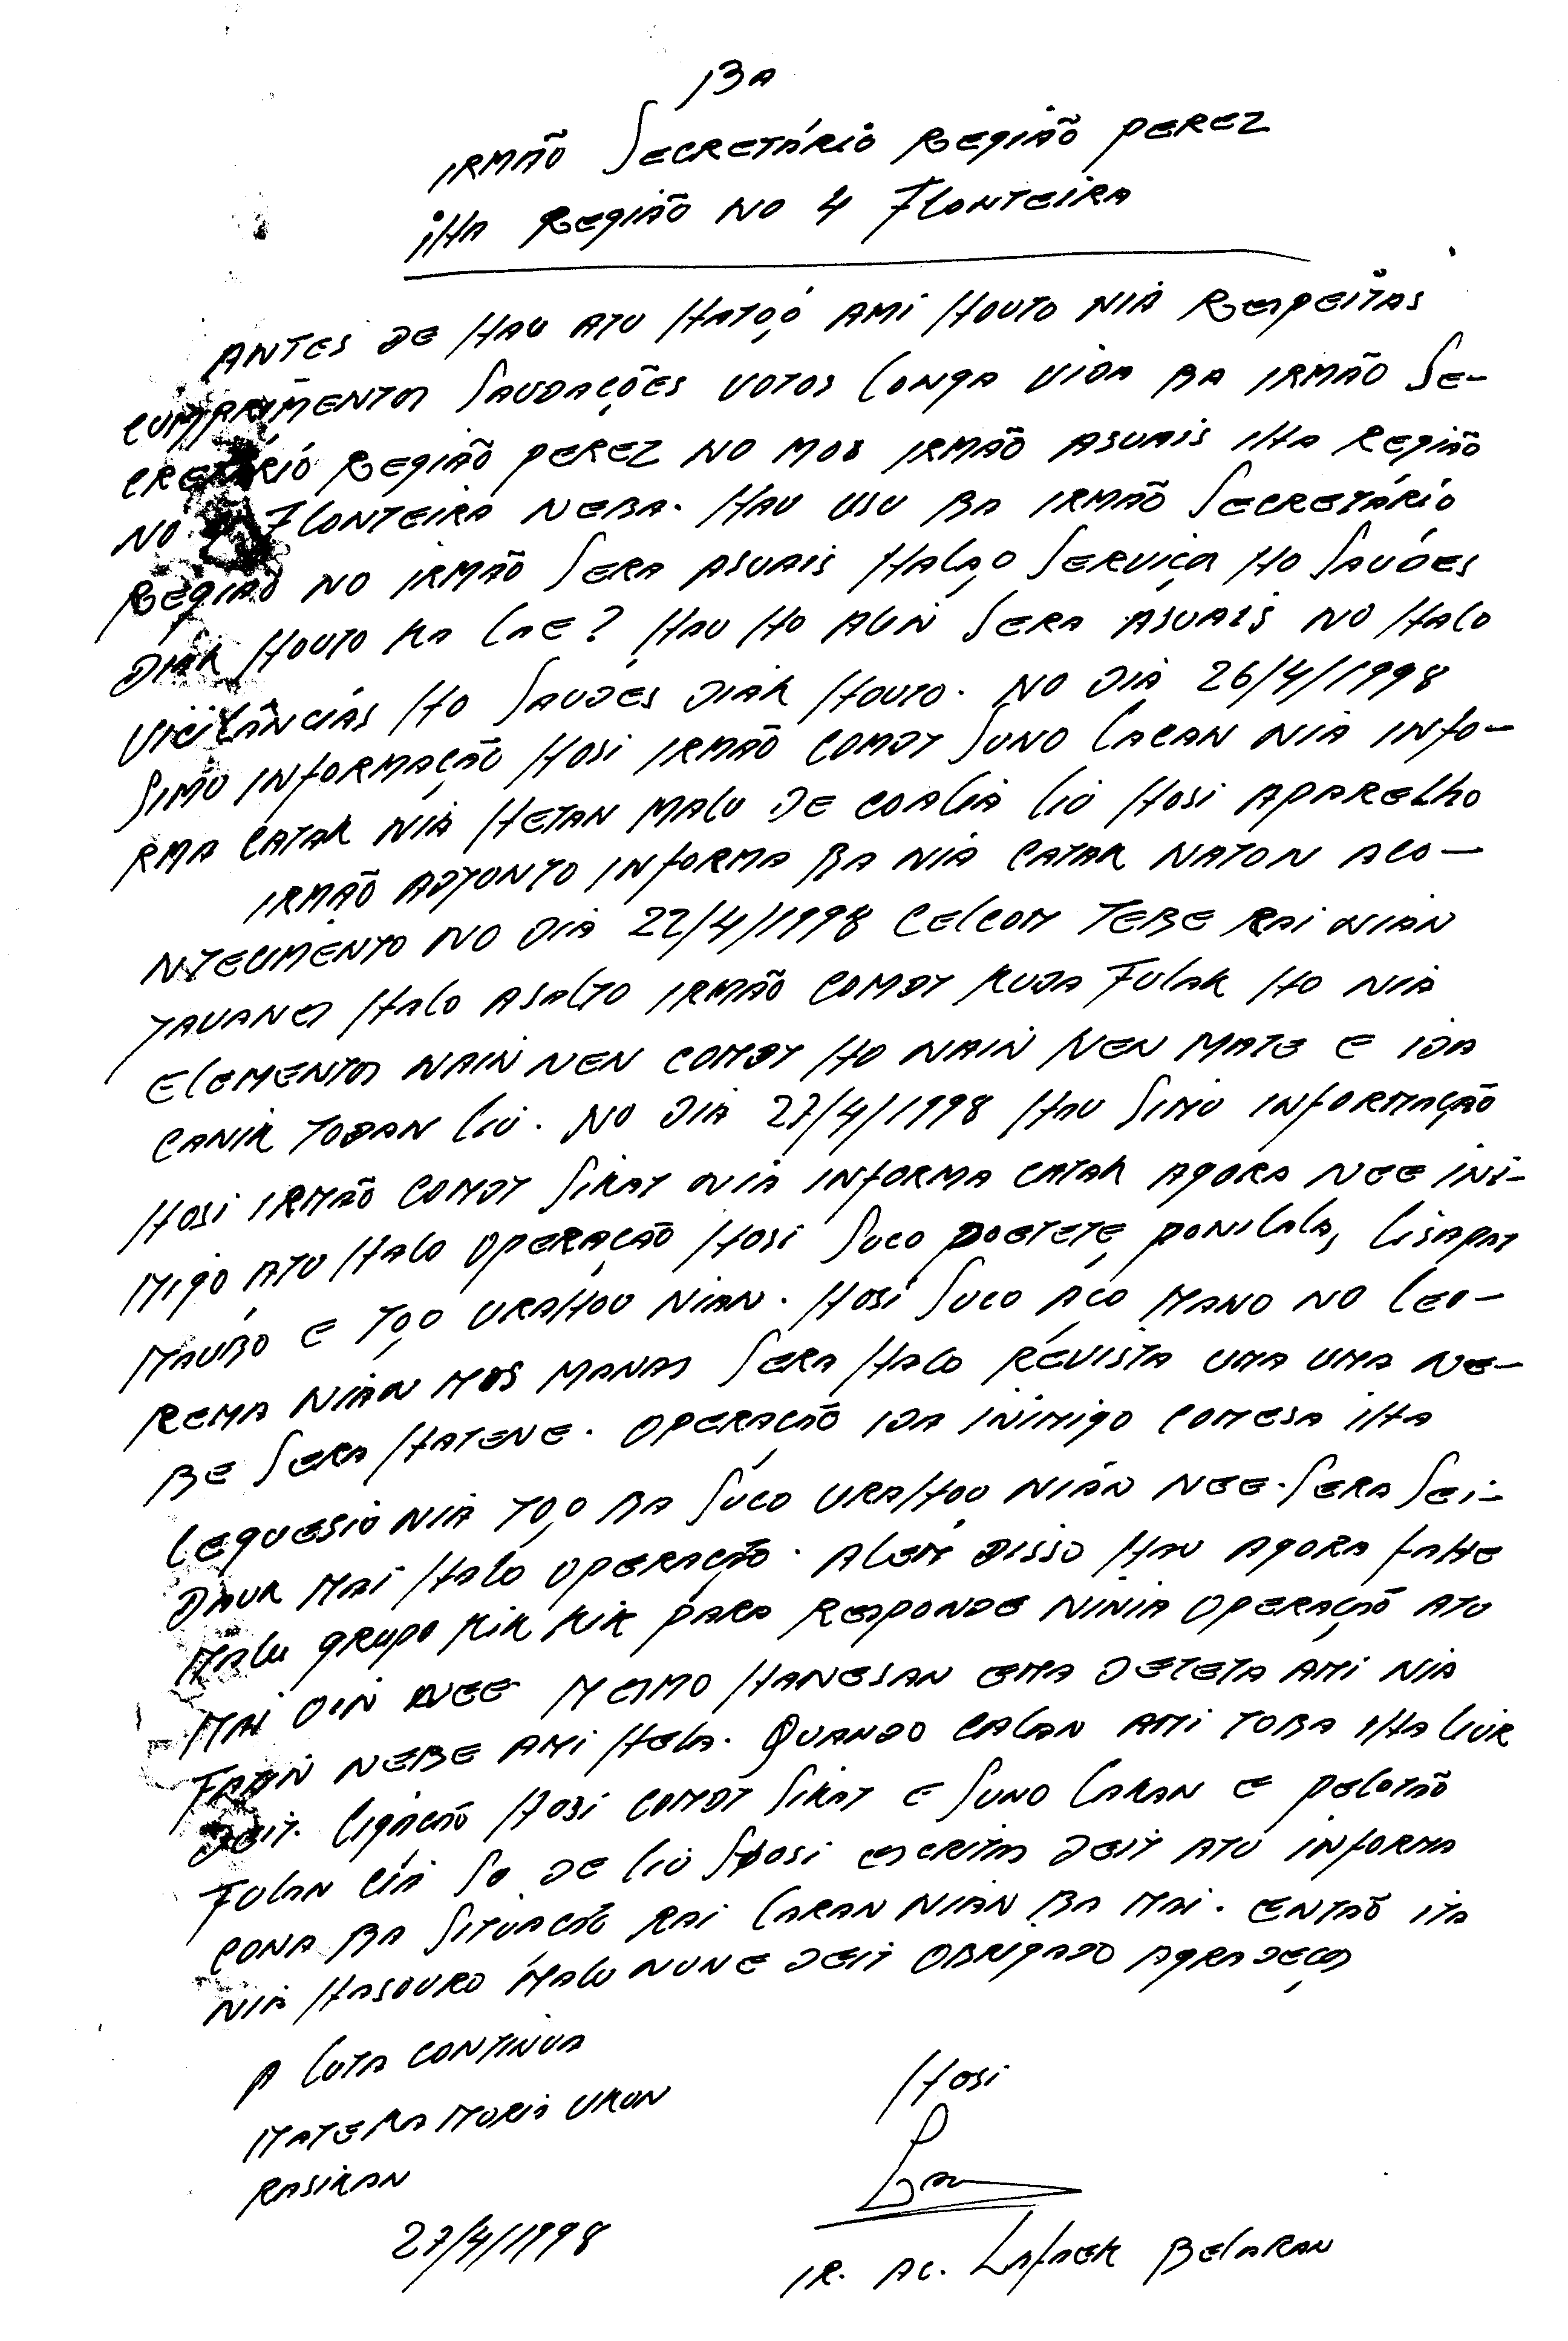 BA
IRMÃO SECRETÁRIO REGIÃO PEREZ
IHA REGIÃO NO 4 FLONTEIRA
ANTES DE HAU ATU HATOÓ AMI HOUTO NIA RESPEITAS
CUMPRIMENTOS SAUDAÇÕES VOTOS LONGA VIDA BA IRMÃO SE-
CRETÁRIO REGIÃO PEREZ NO MOS IRMÃO ASUAIS IHA REGIÃO
NO 4 FLONTEIRA NEBA. HAU USU BA IRMÃO SECRETÁRIO
REGIÃO NO IRMÃO SERA ASUAIS HALAO SERVIÇOS HO SAUDES
DIAK HOUTO KA LAE? HAU HO ALIN SERA ASUAIS NO HALO
VIGILÂNCIAS HO SAUDES DIAK HOUTO. NO DIA 26/4/1998
SIMU INFORMAÇÃO HOSI IRMÃO COMDT SUNO LACAN NIA INFO-
RMA CATAK NIA HETAN MALU DE COALIA LIU HOSI APARELHO
IRMÃO ADJUNTO INFORMA BA NIA CATAK NATON ACO-
NTECIMENTO NO DIA 22/4/1998 CELCOM TEBE RAI NIAN
JAVANES HALO ASALTO IRMÃO COMDT KUDA FULAK HO NIA
ELEMENTOS NAIN NEN COMDT HO NAIN NEN MATE E IDA
CANIK TODAN LIU. NO DIA 27/4/1998 HAU SIMU INFORMAÇÃO
HOSI IRMÃO COMDT SIKAT NIA INFORMA CATAK AGORA NEE INI-
MIGO ATU HALO OPERAÇÃO HOSI SUCO POETETE, PONILALA, LISAPAT
MAUBO E TOO URAHOU NIAN. HOSI SUCO ACO MANO NO LEO-
REMA NIAN MOS MANAS SERA HALO REVISTA UMA UMA NE-
BE SERA HATENE. OPERAÇÃO IDA INIMIGO COMESA IHA
LEQUESIO NIA TOO BA SUCO URAHOU NIAN NEE. SERA SEI-
DAUK MAI HALO OPERAÇÃO. ALEM DISSO HAU AGORA FAHE
MALU GRUPO KIK KIK PARA RESPONDE NINIA OPERAÇÃO ATU
MAI OIN NEE MESMO HANESAN EMA DETETA AMI NIA
FATIN NEBE AMI HELA. QUANDO CALAN AMI TOBA IHA LIUR
DEIT. LIGAÇÃO HOSI COMDT SIKAT E SUNO LAKAN E PELOTÃO
FULAN LIA SO DE LIU HOSI ESCRITOS DEIT ATU INFORMA
CONA BA SITUAÇÃO RAI LARAN NIAN BA MAI. ENTÃO ITA
NIA HASOURO MALU NUNE DEIT OBRIGADO AGRADEÇOS
A LUTA CONTINUA
MATE KA MORIS UKUN
RASIKAN
27/4/1998
HOSI
IR. AC. LAFAEK BELARAN